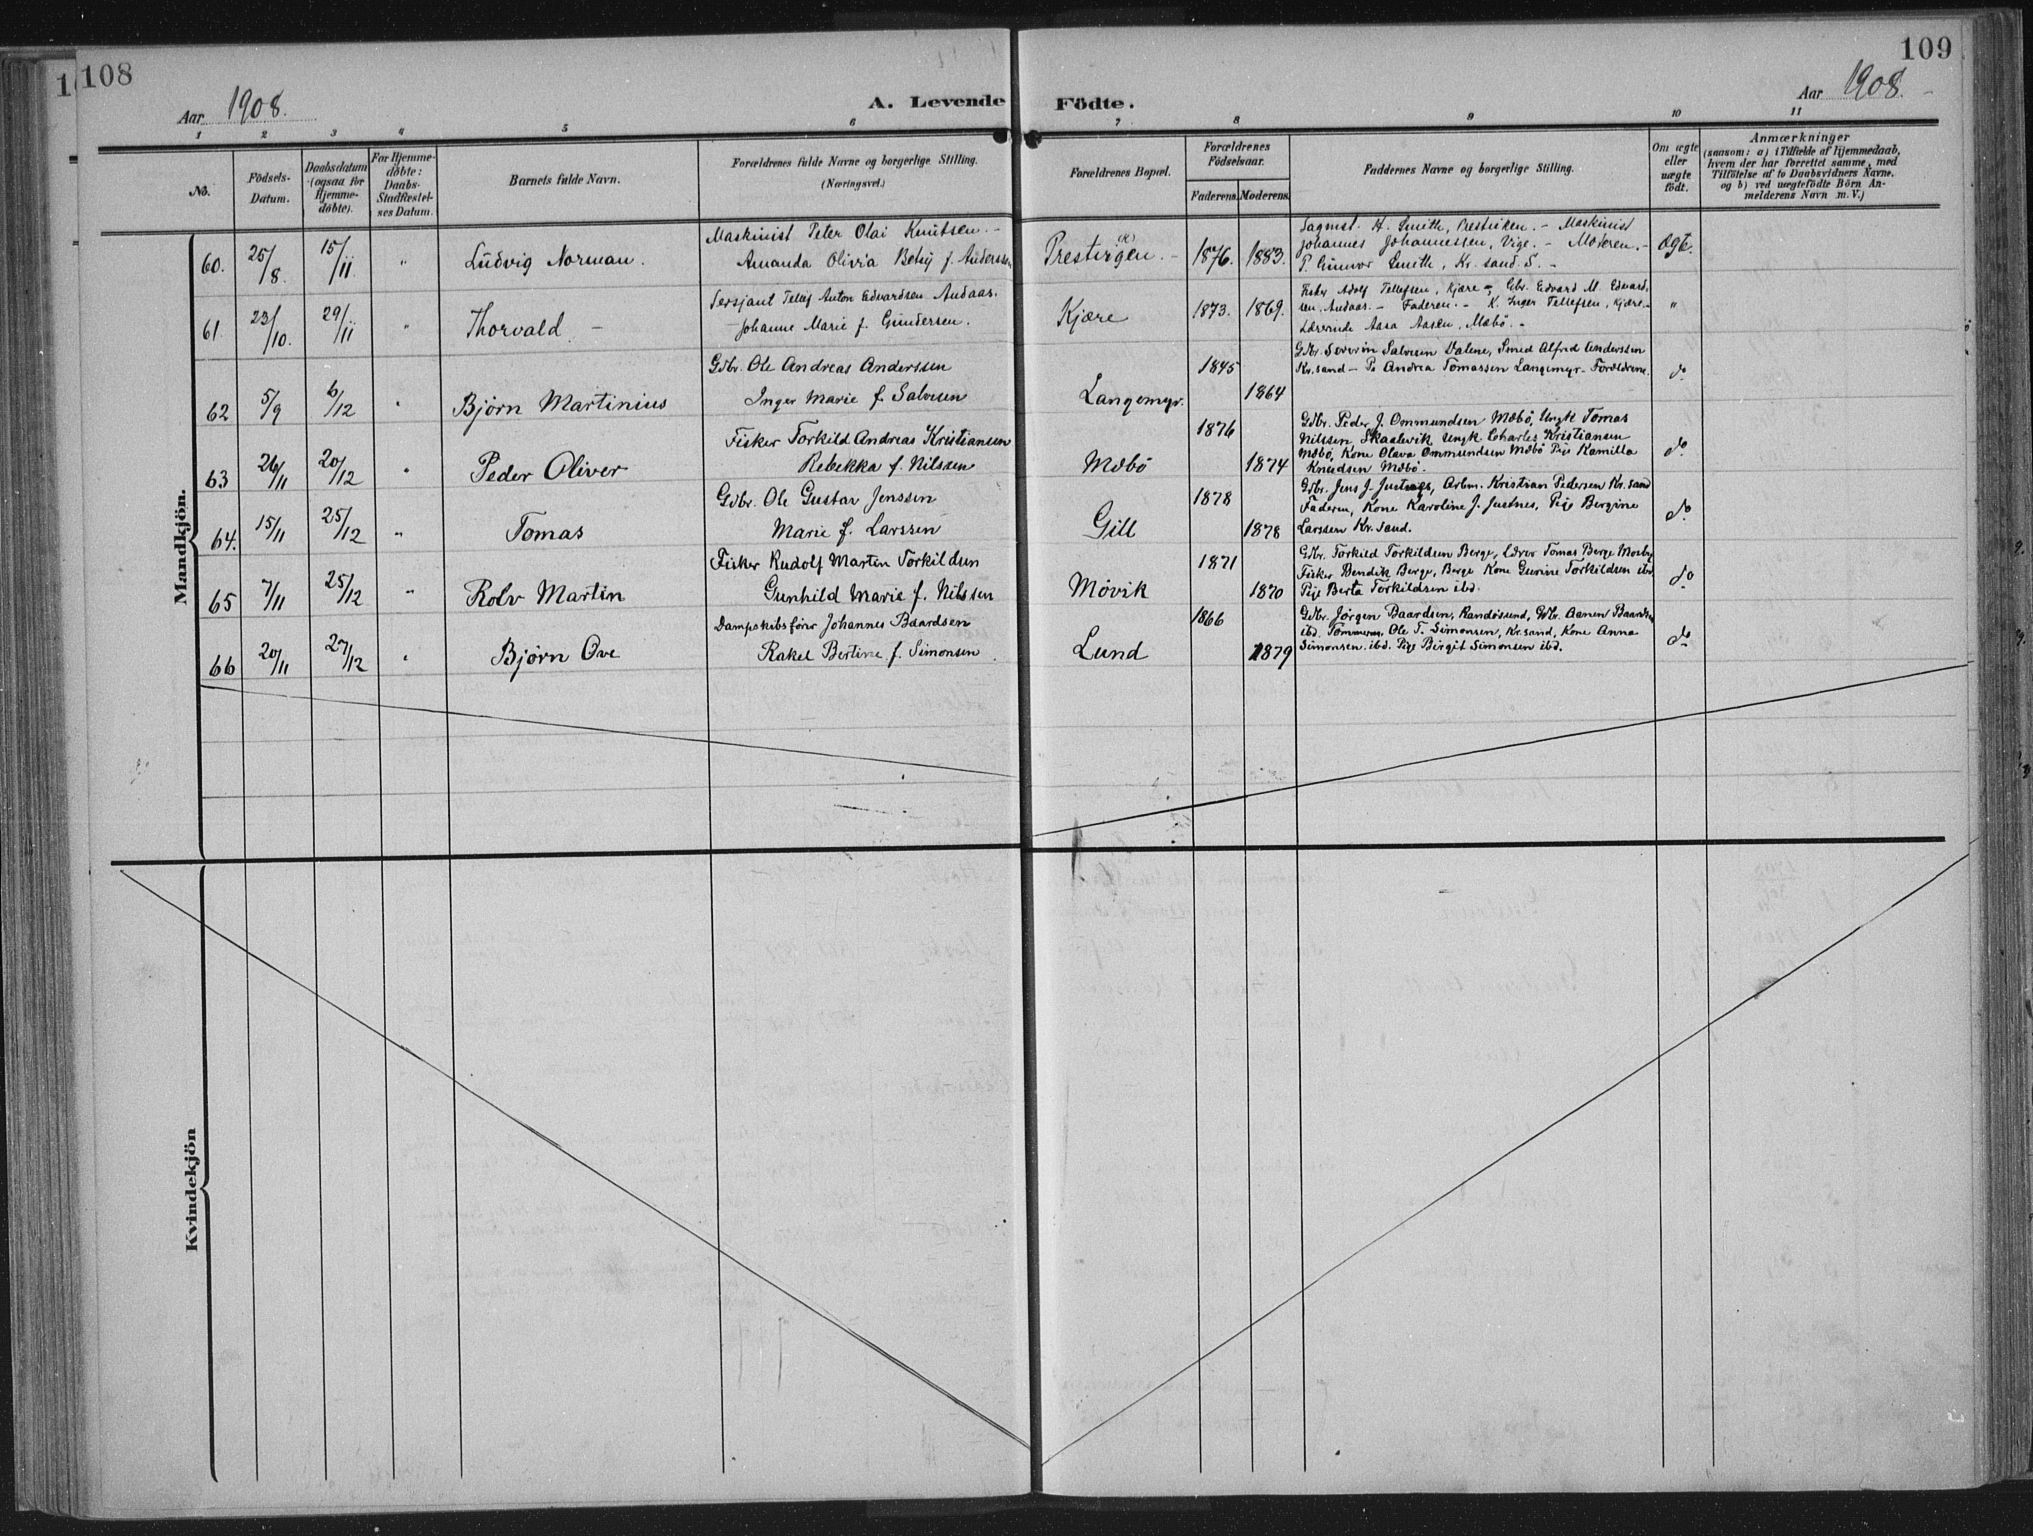 108
109
Aar 1908.
A. Levende Födte.
Aar 1908.
1 2 3 4 5 6 7 8 9 10 11
No.
Födsels-
Datum.
Daabsdatum
(ogsaa for
Hjemme-
døbte).
For Hjemme-
døbte:
Daabs-
Stadfæstel-
ses Datum.
Barnets fulde Navn.
Forældrenes fulde Navne og borgerlige Stilling.
(Næringsvei.)
Forældrenes Bopæl.
Forældrenes
Födselsaar.
Faderens. Moderens.
Faddernes Navne og borgerlige Stilling.
Om ægte
eller
uægte
født.
Anmærkninger
(saasom: a) i Tilfælde af Hjemmedaab,
hvem der har forrettet samme, med
Tilföielse af to Daabsvidners Navne,
og b) ved uægtefödte Börn An-
melderens Navn m. V.)
Mandkjön.
60. 25/8. 15/11. " Ludvig Norman.
Maskinist Peter Olai Knutsen. -
Amanda Olivia Betsy f. Anderssen
Prestvigen. - 1876. 1883.
Sagmst. H. Smith, - Maskinist
Johannes Johannessen, Vige. - Moderen. -
P. Gunvor Smith, Kr. sand S. -
Ægte.
61. 23/10. 29/11 " Thorvald -
Sersjant Tellef Anton Edvardsen Audaas.
Johanne Marie f. Gundersen.
Kjære 1873. 1869.
Fisker Adolf Tellefsen, Kjære -, Gbr. Edvard M. Edvard-
sen, Audaas. - Faderen. - K. Inger Tellefsen, Kjære. -
Lærerinde Aasa Aasen, Mæbø. -
"
62 5/9 6/12 " Bjørn Martinius
Gdbr. Ole Andreas Anderssen
Inger Marie f. Salvesen
Langemyr. 1845 1864
Gdbr. Severin Salvesen Dalene, Smed Alfred Anderssen
Kr. sand - Pi Andrea Tomassen Langemyr - Forældrene.
do
63 26/11 20/12 " Peder Oliver
Fisker Torkild Andreas Kristiansen
Rebekka f. Nilssen
Mæbø 1876 1874
Gdbr. Peder J. Ommundsen Mæbø, Ungk Tomas
Nilssen, Skaalevik Ungk. Charles Kristiansen
Mæbø, Kone Olava Ommundsen Mæbø Pige Kamilla
Knudsen Mæbø.
do
64. 15/11 25/12 " Tomas
Gdbr. Ole Gustav Jenssen
Marie f. Larssen
Gill 1878 1878
Gdbr. Jens J. Justnes, Arbm. Kristian Pedersen Kr. sand
Faderen, Kone Karoline J. Justnes, Pige Bergine
Larssen Kr. sand.
do
65 7/11 25/12 " Rolv Martin
Fisker Rudolf Martin Torkildsen
Gunhild Marie f. Nilssen
Møvik 1871 1870
Gdbr. Torkild Torkildsen Berge, Lærer Tomas Berge Mosby
Fisker Bendik Berge, Berge Kone Gurine Torkildsen ibd.
Pige Berta Torkildsen ibd.
do
66 20/11 27/12 " Bjørn Ove
Dampskibsfører Johannes Baardsen
Rakel Bertine f. Simonsen
Lund 1866 1879
Gdbr. Jørgen Baardsen, Randøsund, Gdbr. Aanen Baardsen
ibd. Tømmerm. Ole T. Simonsen, Kr. sand, Kone Anna
Simonsen ibd. Pige Birgit Simonsen ibd.
do
Kvindekjön